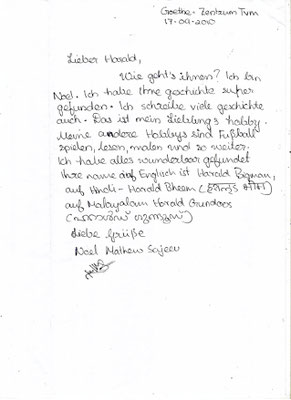 Goethe-Zentrum Tvm
17-09-2010
Lieber Harald,
Wie geht's ihnen? Ich bin
Noel. Ich habe Ihre geschichte super
gefunden. Ich schreibe viele geschichte
auch. Das ist mein Lieblings hobby.
Meine andere Hobbys sind Fußball
spielen, lesen, malen und so weiter.
Ich habe alles wunderbar gefundet
Ihre name auf Englisch ist Harald Bigman,
auf Hindi - Harald Bheem (
auf Malayalam Harald
Liebe Grüße
Noel Mathew Sajeev